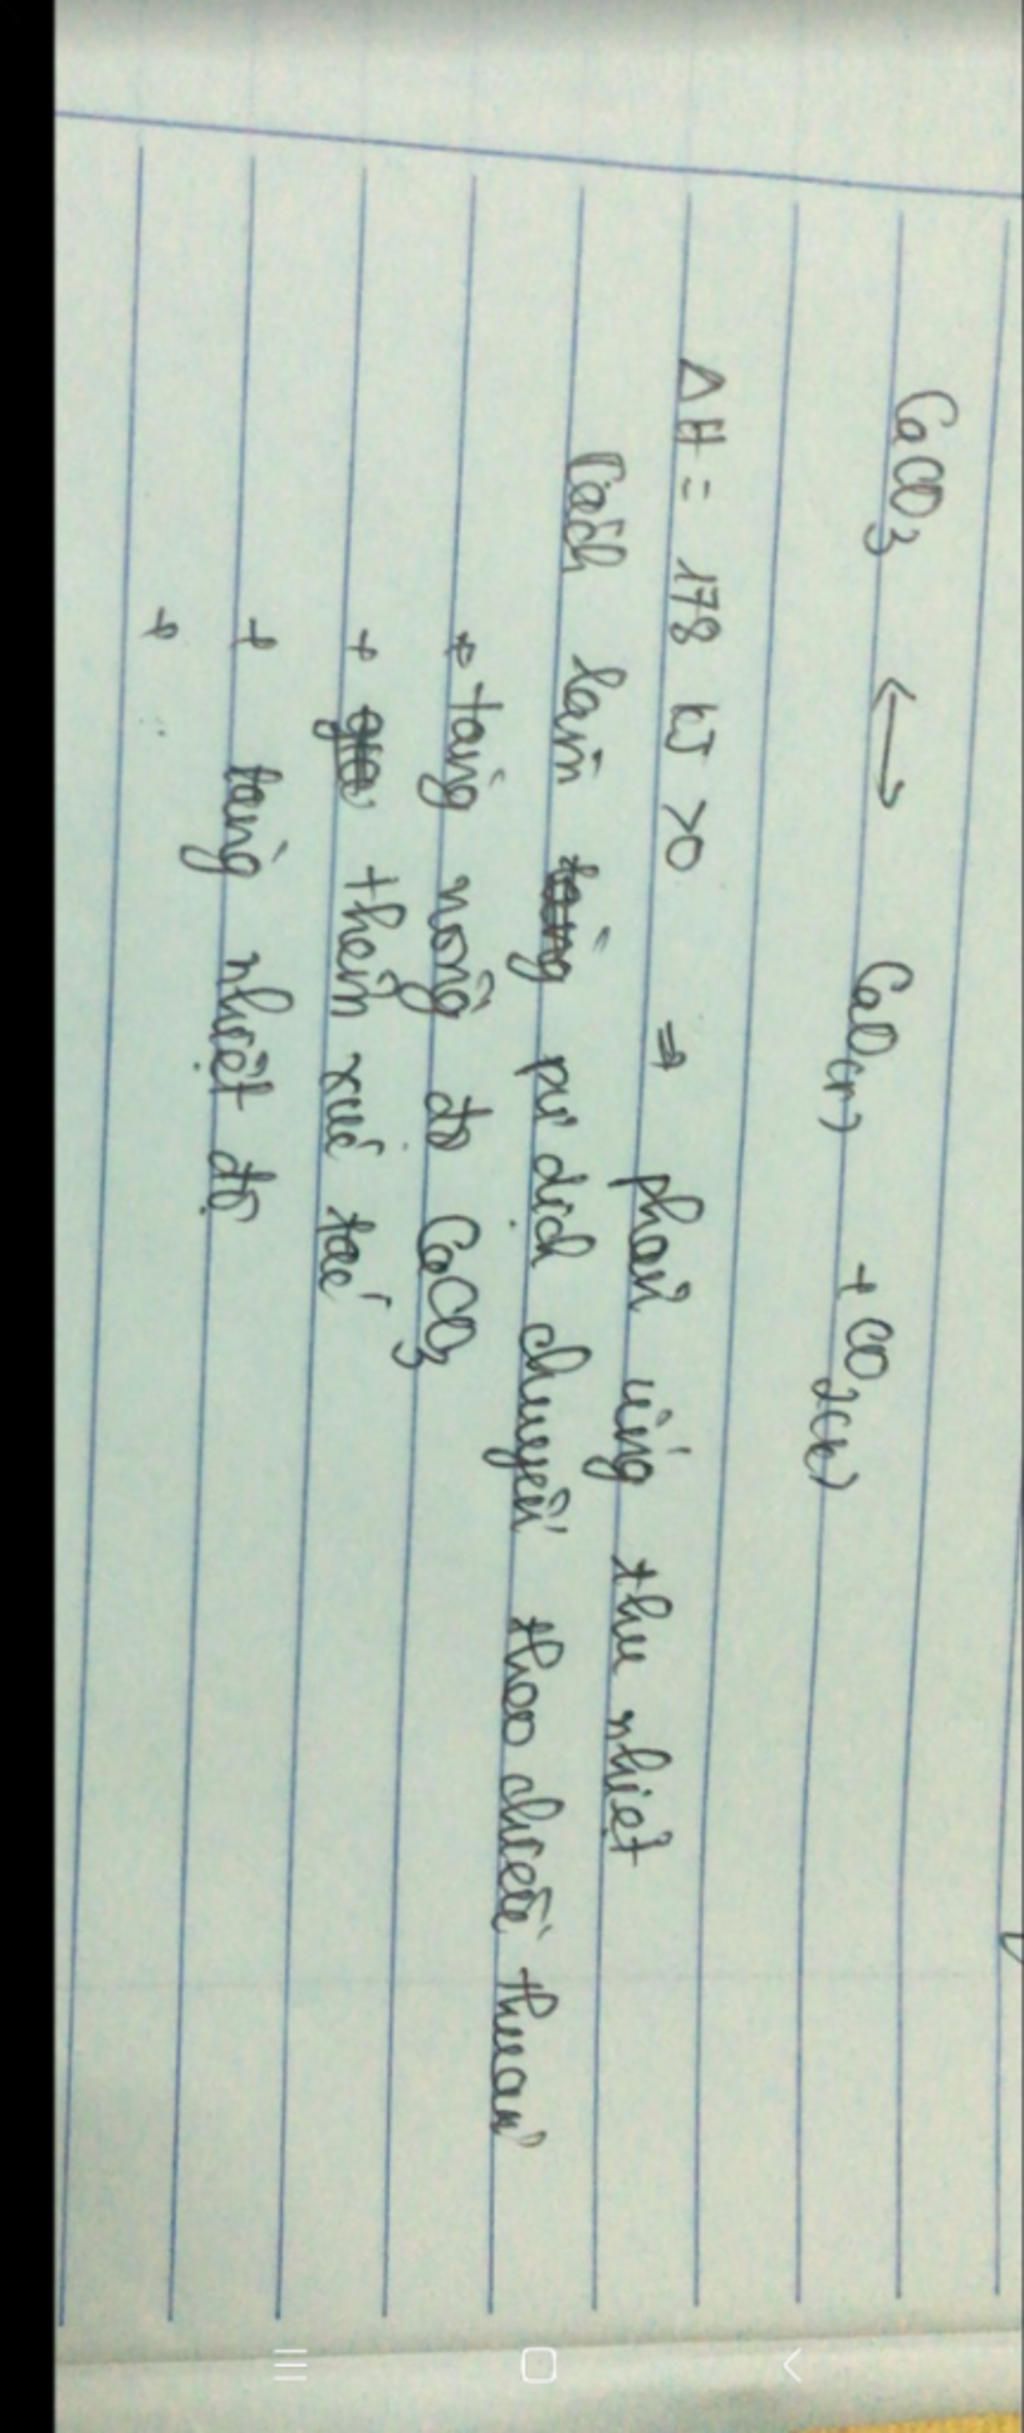 CaCO3 ⟷ CaO(r) + CO2(k)
ΔH = 178 kJ >0 ⇒ phản ứng thu nhiệt
Cách làm pư dịch chuyển theo chiều thuận
+ tăng nồng độ CaCO3
+ thêm xúc tác
+ tăng nhiệt độ
+